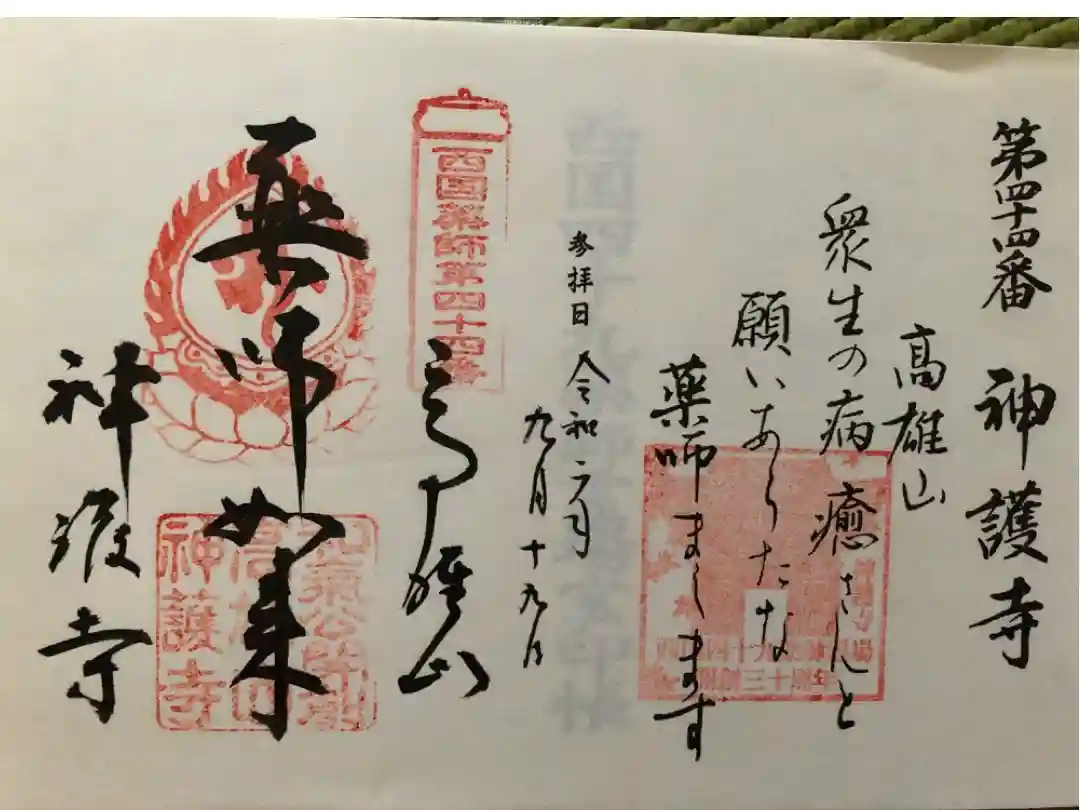 第四十四番 神護寺
高雄山
衆生の病 癒さんと
願いあらたな
薬師まします
参拝日 令和 元年
九月十九日
西国薬師第四十四番
高雄山
薬師如来
神護寺
和気公霊廟
高雄山
神護寺